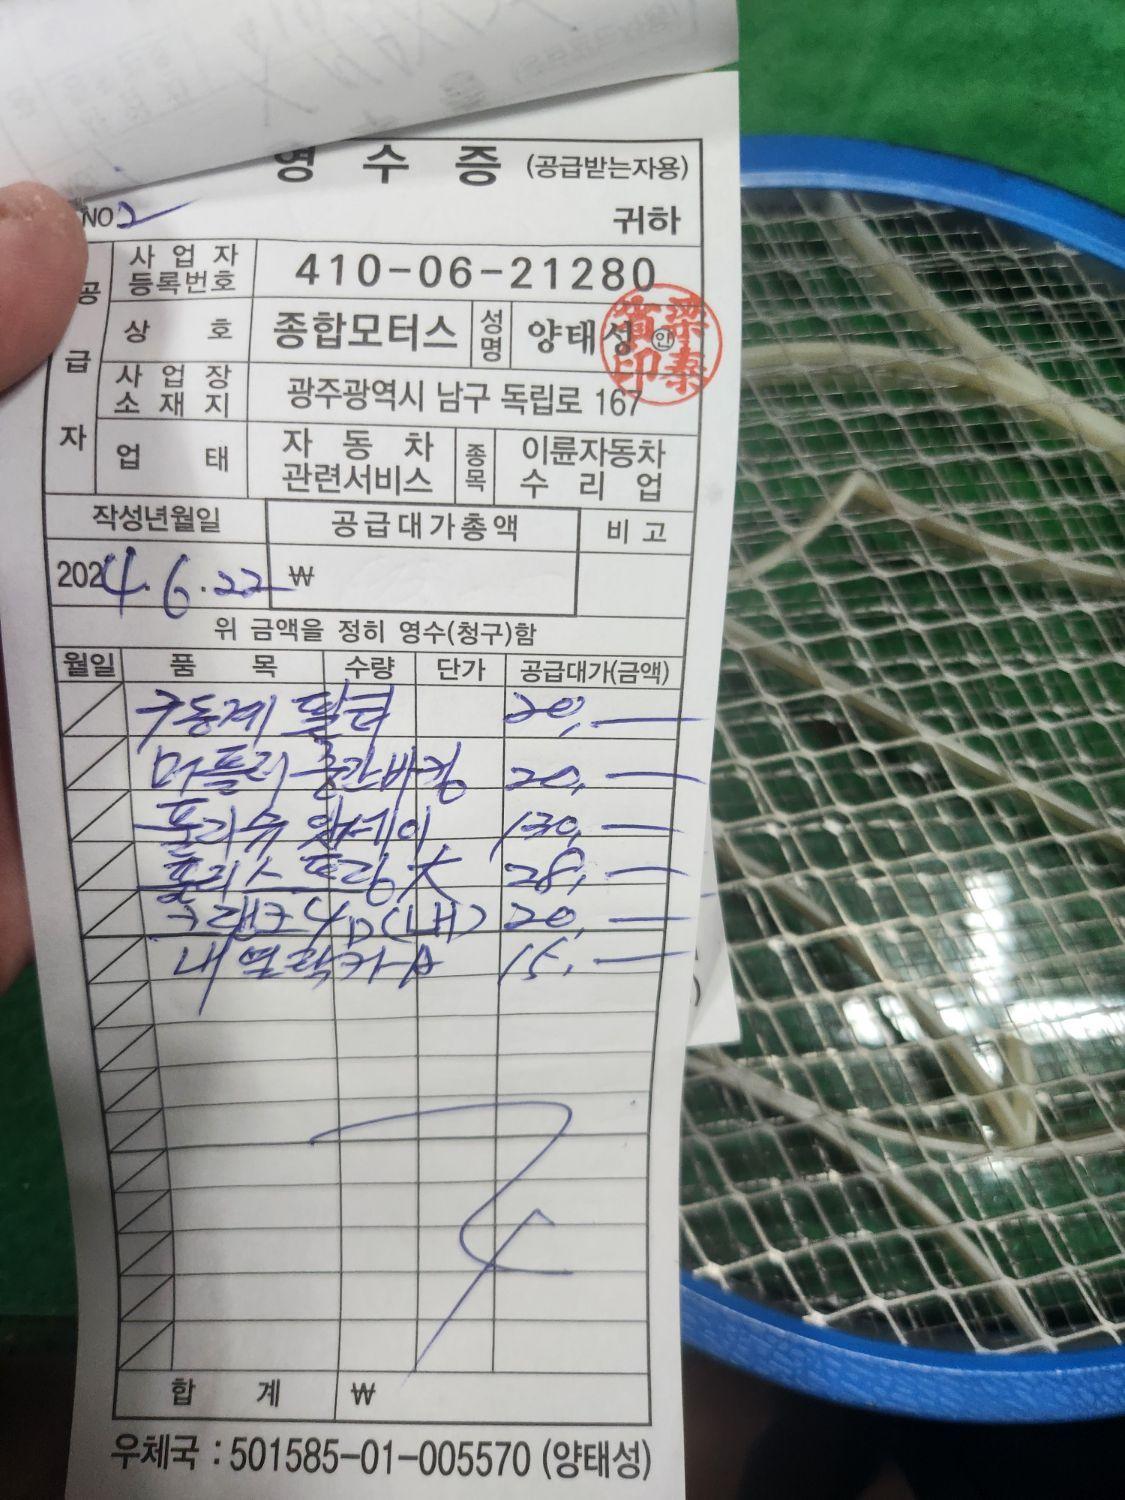 영 수 증 (공급받는자용)
NO 2 귀하
공급자
사업자등록번호 410-06-21280
상 호 종합모터스 성명 양태성 ㊞
사업장소재지 광주광역시 남구 독립로 167
업 태 자동차관련서비스 종목 이륜자동차수리업
작성년월일 공급대가총액 비고
2024.6.22 ₩
위 금액을 정히 영수(청구)함
월일 품 목 수량 단가 공급대가(금액)
구동계 탈거 20,—
머플러 중간바킹 20,—
풀리 앗세이 130,—
28,—
크랭크 (내) 20,—
15,—
합 계 ₩
우체국 : 501585-01-005570 (양태성)